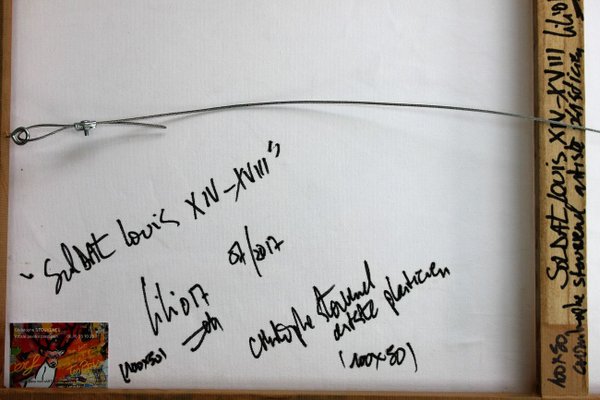 "SOLDAT LOUIS XIV-XVIII"
07/2017
Lilio17
(100x50)
Christophe Stouvenel
artiste plasticien
(100x50)
SOLDAT LOUIS XIV-XVIII Lilio
100x50 Christophe Stouvenel artiste plasticien